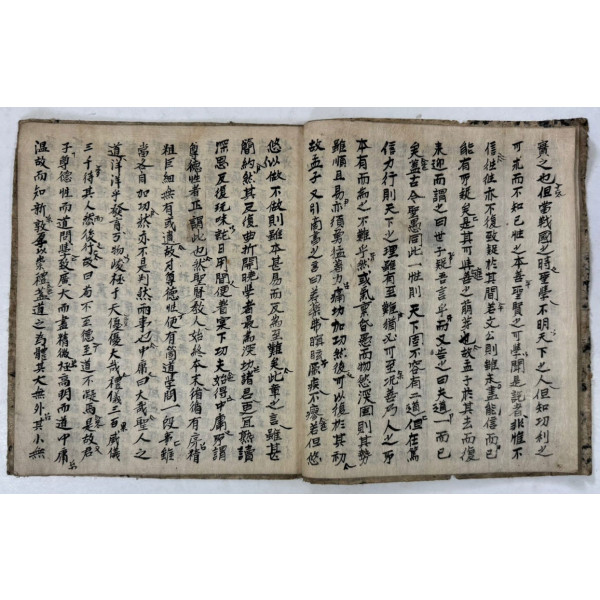 實之也但當戰國之時聖學不明天下之人但知功利之
可求而不知己性之本善聖賢之可學聞是說者非惟不
信往往亦不復致疑於其間若文公則雖未盡能信而已
能有所疑矣是其可與善之萌芽也故孟子於其去而復
來迎而謂之曰世子疑吾言乎而又告之曰夫道一而已
矣蓋古今聖愚同此一性則天下固不容有二道但在篤
信力行則天下之理雖有至難猶必可至况善乃人之所
本有而爲之不難乎然或氣稟昏愚而物慾深固則其勢
雖順且易亦須勇猛著力痛切加功然後可以復於其初
故孟子又引商書之言曰若藥弗瞑眩厥疾不瘳若但悠
悠似做不做則雖本甚易而反爲至難矣此章之言雖甚
簡約然其反復曲折開曉學者最爲深切諸君更宜熟讀
深思反復玩味就日用間便着實下功夫始得中庸所謂
尊德性者正謂此也然聖賢教人始終本末循循有序精
粗巨細無有或遺故才尊德性便有箇道問學一段事雖
當各自加功然亦不是判然兩事也中庸曰大哉聖人之
道洋洋乎發育万物峻極于天優優大哉禮儀三百威儀
三千待其人然後行故曰苟不至德至道不凝焉是故君
子尊德性而道問學致廣大而盡精微極高明而道中庸
溫故而知新敦厚以崇禮蓋道之爲體其大無外其小無